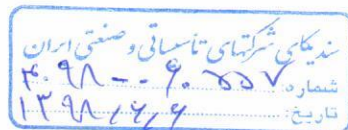 سندیکای شرکتهای تأسیساتی و صنعتی ایران
شماره:
تاریخ: ۱۳۹۸/۶/۶